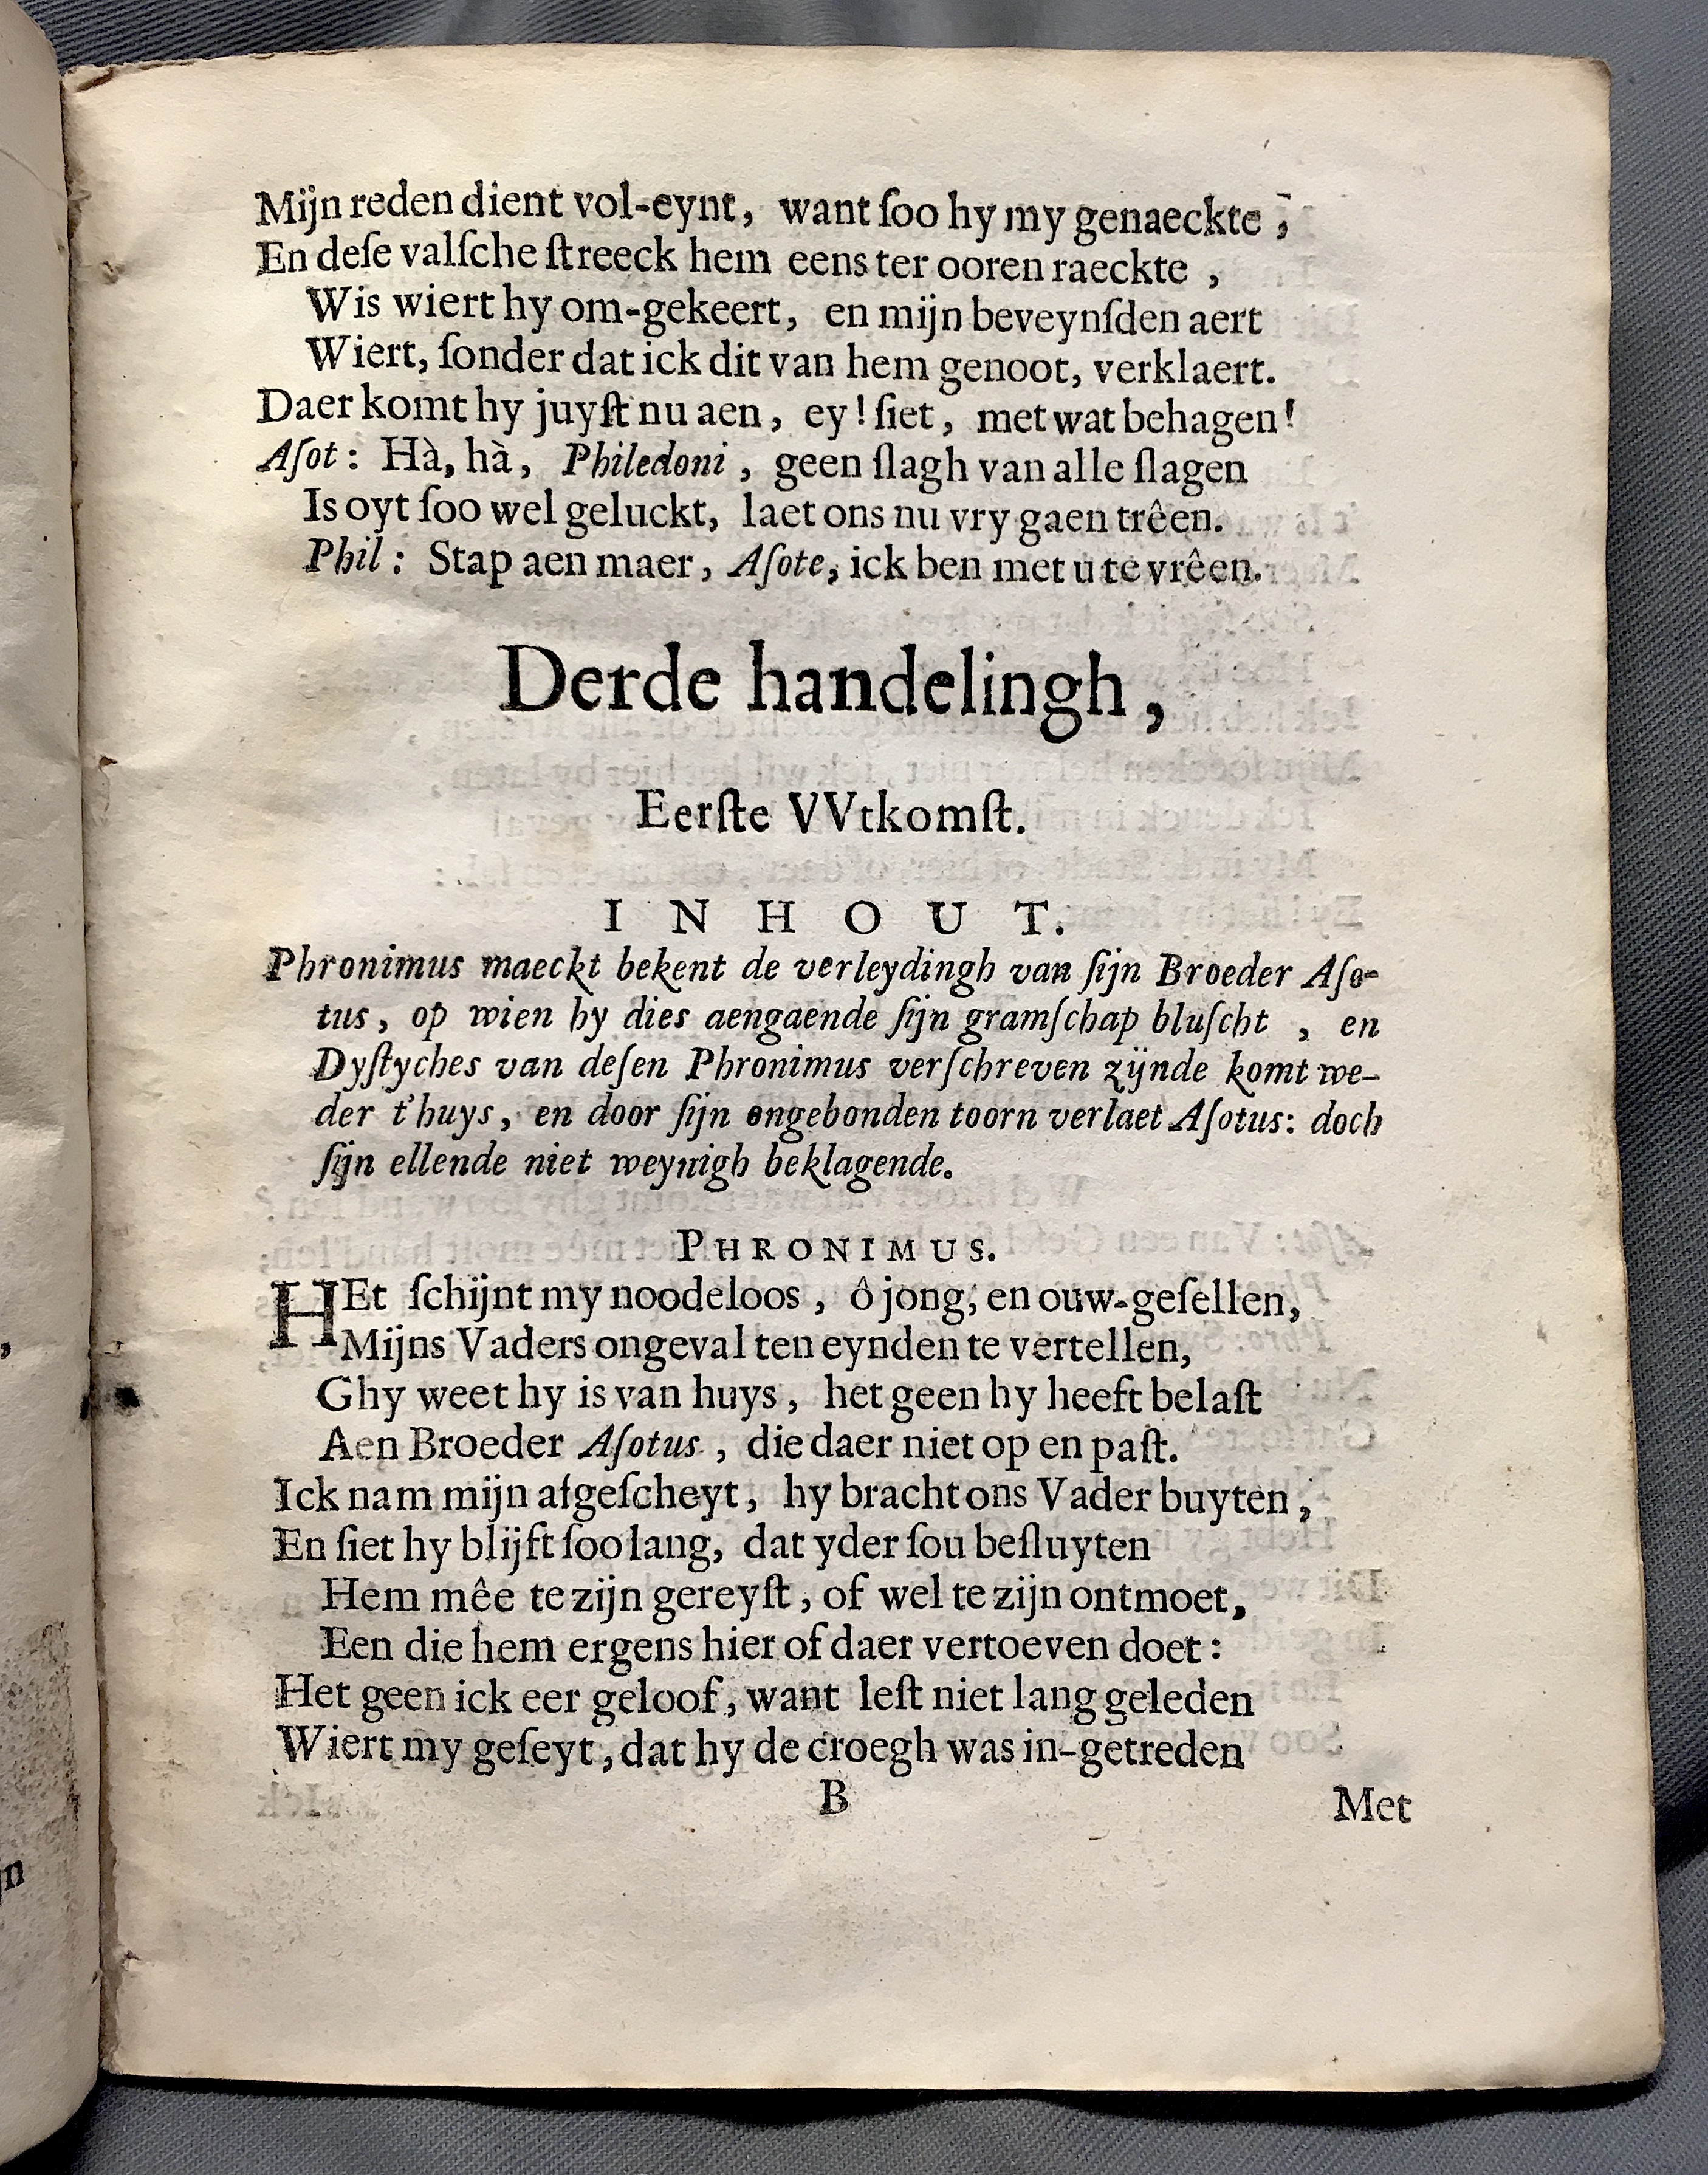 Mijn reden dient vol-eynt, want ſoo hy my genaeckte ,
En deſe valſche ſtreeck hem eens ter ooren raeckte ,
Wis wiert hy om-gekeert, en mijn beveynſden aert
Wiert, ſonder dat ick dit van hem genoot, verklaert.
Daer komt hy juyſt nu aen, ey! ſiet, met wat behagen!
Aſot: Hà, hà, Philedoni, geen ſlagh van alle ſlagen
Is oyt ſoo wel geluckt, laet ons nu vry gaen trêen.
Phil: Stap aen maer, Aſote, ick ben met u te vrêen.
Derde handelingh,
Eerſte VVtkomſt.
INHOUT.
Phronimus maeckt bekent de verleydingh van ſijn Broeder Aſo-
tus, op wien hy dies aengaende ſijn gramſchap bluſcht , en
Dyſtyches van deſen Phronimus verſchreven zijnde komt we-
der t'huys, en door ſijn ongebonden toorn verlaet Aſotus: doch
ſijn ellende niet weynigh beklagende.
PHRONIMUS.
HEt ſchijnt my noodeloos, ô jong, en ouw-geſellen,
Mijns Vaders ongeval ten eynden te vertellen,
Ghy weet hy is van huys, het geen hy heeft belaſt
Aen Broeder Aſotus, die daer niet op en paſt.
Ick nam mijn afgeſcheyt, hy bracht ons Vader buyten,
En ſiet hy blijft ſoo lang, dat yder ſou beſluyten
Hem mêe te zijn gereyſt, of wel te zijn ontmoet,
Een die hem ergens hier of daer vertoeven doet:
Het geen ick eer geloof, want leſt niet lang geleden
Wiert my geſeyt, dat hy de croegh was in-getreden
B Met
,
n